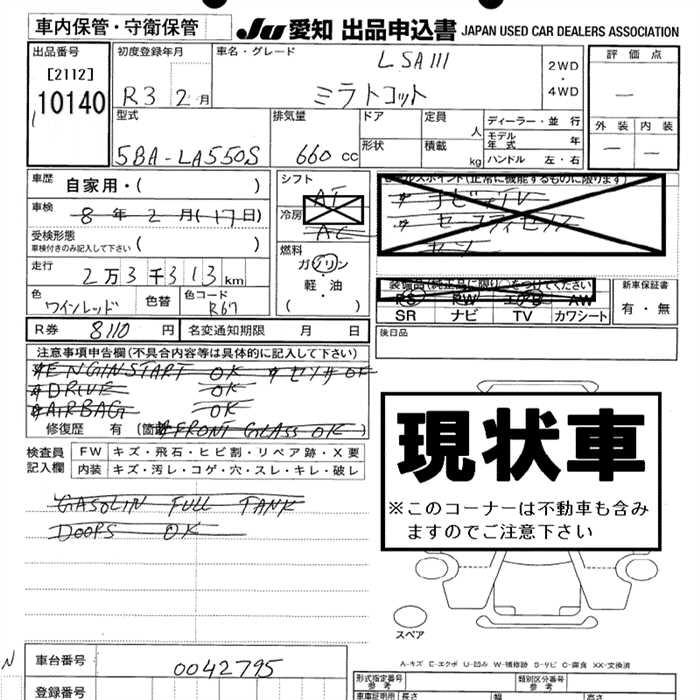 車内保管・守衛保管
JU 愛知 出品申込書 JAPAN USED CAR DEALERS ASSOCIATION
出品番号
[2112]
10140
初度登録年月
R3 2月
車名・グレード
LSAIII
ミラトコット
2WD
・
4WD
評価点
—
外装 内装
— —
型式
5BA-LA550S
排気量
660 cc
ドア
形状
定員 人
積載 kg
ディーラー・並行
モデル年式 年
ハンドル 左・右
車歴 自家用・( )
車検 8年2月(17日)
受検形態
車検付きのみ記入して下さい ( )
走行 2万3千313km
色 ワインレッド
色替
色コード R67
シフト
AT
冷房
AC
燃料
ガソリン
・
軽・油
( )
セールスポイント(正常に機能するものに限ります)
装備品(純正品に限り○をつけてください)
PS PW エアB AW
SR ナビ TV カワシート
新車保証書
有・無
R券 8110円
名変通知期限 月 日
後日品
注意事項申告欄(不具合内容等は具体的に記入して下さい)
*ENGINSTART OK *センサ OK
*DRIVE OK
*AIRBAG OK
修復歴 有 (箇 *FRONT GLASS OK)
検査員
記入欄
FW キズ・飛石・ヒビ割・リペア跡・X要
内装 キズ・汚レ・コゲ・穴・スレ・キレ・破レ
GASOLIN FULL TANK
DOOPS OK
現状車
※このコーナーは不動車も含み
ますのでご注意下さい
スペア
A-キズ E-エクボ U-凹み W-補修跡 S-サビ C-腐食 XX-交換済
N
車台番号 0042795
登録番号
形式指定番号
参考
類別区分番号
参考
車車証明用 長さ 幅 高さ